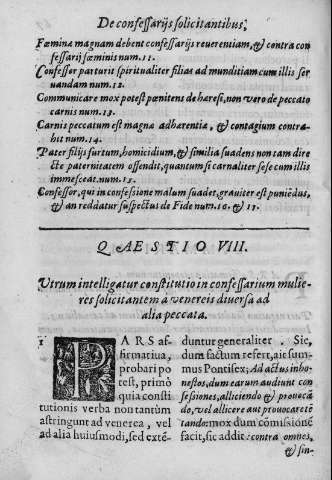 De confessarijs solicitantibus,
Fœmina magnam debent confessarijs reuerentiam, & contra con
fessarij fœminis num.11.
Confessor parturit spiritualiter filias ad munditiam cum illis ser
uandam num.12.
Communicare mox potest pœnitens de hæresi, non vero de peccato
carnis num.13.
Carnis peccatum est magnæ adhærentiæ, & contagium contra-
hit num.14.
Pater filijs furtum, homicidium, & similia suadens non tam dire
cte paternitatem offendit, quantum si carnaliter sese cum illis
immesceat num.15.
Confessor, qui in confessione malum suadet, grauiter est puniēdus,
& an reddatur suspectus de Fide num.16. & 17.
QVAESTIO VIII.
Vtrum intelligatur constitutio in confessarium mulie-
res solicitantem à venereis diuersa ad
alia peccata.
1 PARS af-
firmatiua,
probari po
test, primò
quia consti
tutionis verba non tantùm
astringunt ad venerea, vel
ad alia huiusmodi, sed extē-
duntur generaliter. Sic,
dum factum refert, ait sum-
mus Pontifex; Ad actus inho-
nestos, dum earum audiunt con
fessiones, alliciendo & prouocā
do, vel allicere aut prouocare tē
tando: mox dum comissionē
facit, sic addit: contra omnes,
& sin-